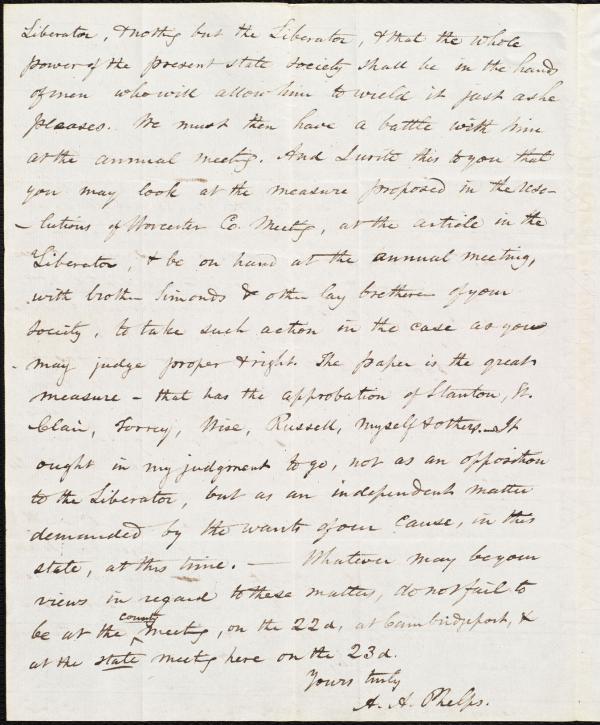 Liberator, & nothg but the Liberator, & that the whole
power of the present state society shall be in the hands
of men who will allow him to wield it just as he
pleases. We must then have a battle with him
at the annual meetg. And I write this to you that
you may look at the measure proposed in the reso-
-lutions of Worcester Co. Meetg, at the article in the
Liberator, & be on hand at the annual meeting,
with brother Simonds & other lay brethren of your
society, to take such action in the case as you
may judge proper & right. The paper is the great
measure - that has the approbation of Stanton, St.
Clair, Torrey, Wise, Russell, myself & others. - It
ought in my judgment to go, not as an opposition
to the Liberator, but as an independent matter
demanded by the wants of our cause, in this
state, at this time. — Whatever may be your
views in regard to these matters, do not fail to
county
be at the meetg, on the 22d, at Cambridgeport, &
at the state meetg here on the 23d.
Yours truly
A. A. Phelps.